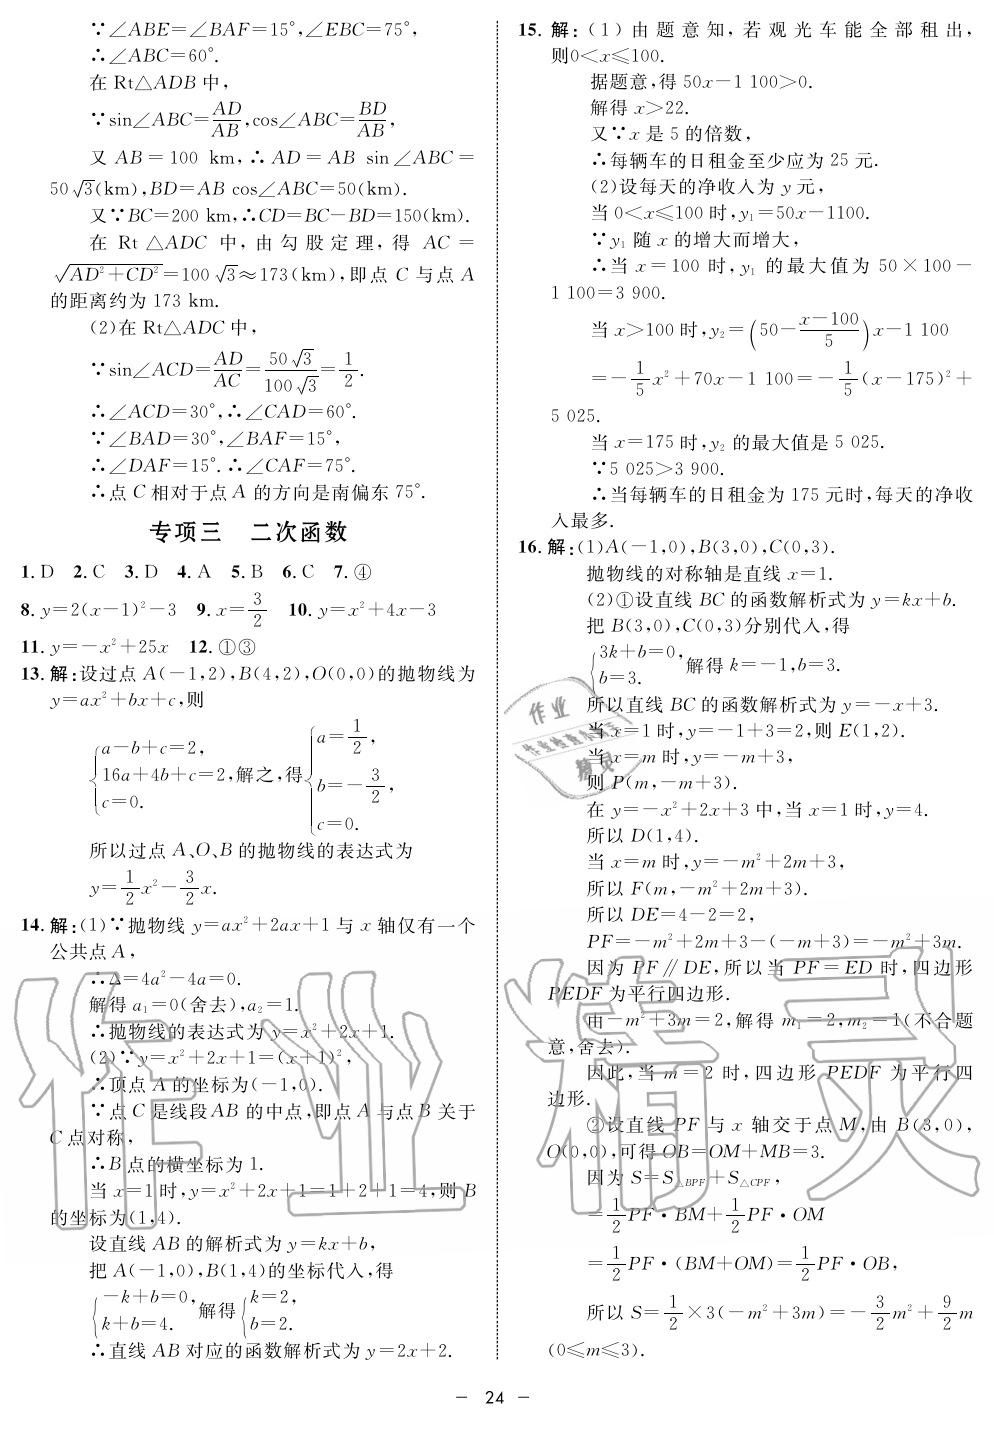 ∵∠ABE=∠BAF=15°,∠EBC=75°,
∴∠ABC=60°.
在 Rt△ADB 中,
∵sin∠ABC=AD/AB,cos∠ABC=BD/AB,
又 AB=100 km,∴AD=AB sin∠ABC=
50√3(km),BD=AB cos∠ABC=50(km).
又∵BC=200 km,∴CD=BC-BD=150(km).
在 Rt △ADC 中,由勾股定理,得 AC=
√(AD²+CD²)=100√3≈173(km),即点 C 与点 A
的距离约为 173 km.
(2)在 Rt△ADC 中,
∵sin∠ACD=AD/AC=50√3/100√3=1/2.
∴∠ACD=30°,∴∠CAD=60°.
∵∠BAD=30°,∠BAF=15°,
∴∠DAF=15°.∴∠CAF=75°.
∴点 C 相对于点 A 的方向是南偏东 75°.
专项三 二次函数
1. D 2. C 3. D 4. A 5. B 6. C 7. ④
8. y=2(x-1)²-3 9. x=3/2 10. y=x²+4x-3
11. y=-x²+25x 12. ①③
13. 解:设过点 A(-1,2),B(4,2),O(0,0)的抛物线为
y=ax²+bx+c,则
{a-b+c=2, 16a+4b+c=2, c=0. 解之,得 {a=1/2, b=-3/2, c=0.
所以过点 A、O、B 的抛物线的表达式为
y=1/2x²-3/2x.
14. 解:(1)∵抛物线 y=ax²+2ax+1 与 x 轴仅有一个
公共点 A,
∴Δ=4a²-4a=0.
解得 a₁=0(舍去),a₂=1.
∴抛物线的表达式为 y=x²+2x+1.
(2)∵y=x²+2x+1=(x+1)²,
∴顶点 A 的坐标为(-1,0).
∵点 C 是线段 AB 的中点,即点 A 与点 B 关于
C 点对称,
∴B 点的横坐标为 1.
当 x=1 时,y=x²+2x+1=1+2+1=4,则 B
的坐标为(1,4).
设直线 AB 的解析式为 y=kx+b,
把 A(-1,0),B(1,4)的坐标代入,得
{-k+b=0, k+b=4. 解得 {k=2, b=2.
∴直线 AB 对应的函数解析式为 y=2x+2.
15. 解:(1)由题意知,若观光车能全部租出,
则0<x≤100.
据题意,得 50x-1 100>0.
解得 x>22.
又∵x 是 5 的倍数,
∴每辆车的日租金至少应为 25 元.
(2)设每天的净收入为 y 元,
当 0<x≤100 时,y₁=50x-1100.
∵y₁ 随 x 的增大而增大,
∴当 x=100 时,y₁ 的最大值为 50×100-
1 100=3 900.
当 x>100 时,y₂=(50-(x-100)/5)x-1 100
=-1/5x²+70x-1 100=-1/5(x-175)²+
5 025.
当 x=175 时,y₂ 的最大值是 5 025.
∵5 025>3 900.
∴当每辆车的日租金为 175 元时,每天的净收
入最多.
16. 解:(1)A(-1,0),B(3,0),C(0,3).
抛物线的对称轴是直线 x=1.
(2)①设直线 BC 的函数解析式为 y=kx+b.
把 B(3,0),C(0,3)分别代入,得
{3k+b=0, b=3. 解得 k=-1,b=3.
所以直线 BC 的函数解析式为 y=-x+3.
当 x=1 时,y=-1+3=2,则 E(1,2).
当 x=m 时,y=-m+3,
则 P(m,-m+3).
在 y=-x²+2x+3 中,当 x=1 时,y=4.
所以 D(1,4).
当 x=m 时,y=-m²+2m+3,
所以 F(m,-m²+2m+3).
所以 DE=4-2=2,
PF=-m²+2m+3-(-m+3)=-m²+3m.
因为 PF∥DE,所以当 PF=ED 时,四边形
PEDF 为平行四边形.
由-m²+3m=2,解得 m₁=2,m₂=1(不合题
意,舍去).
因此,当 m=2 时,四边形 PEDF 为平行四
边形.
②设直线 PF 与 x 轴交于点 M,由 B(3,0),
O(0,0),可得 OB=OM+MB=3.
因为 S=S△BPF+S△CPF,
=1/2PF·BM+1/2PF·OM
=1/2PF·(BM+OM)=1/2PF·OB,
所以 S=1/2×3(-m²+3m)=-3/2m²+9/2m
(0≤m≤3).
- 24 -
作业精灵